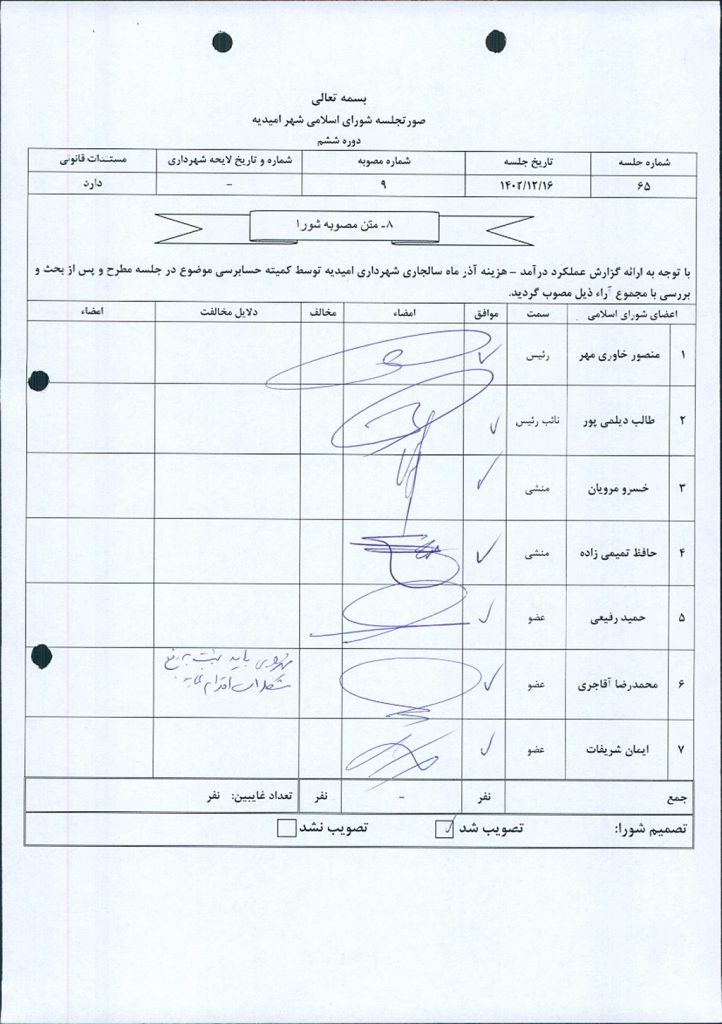 بسمه تعالی
صورتجلسه شورای اسلامی شهر امیدیه
دوره ششم
شماره جلسه تاریخ جلسه شماره مصوبه شماره و تاریخ لایحه شهرداری مستندات قانونی
۶۵ ۱۴۰۲/۱۲/۱۶ ۹ - دارد
۸ـ متن مصوبه شورا
با توجه به ارائه گزارش عملکرد درآمد – هزینه آذر ماه سالجاری شهرداری امیدیه توسط کمیته حسابرسی موضوع در جلسه مطرح و پس از بحث و
بررسی با مجموع آراء ذیل مصوب گردید.
اعضای شورای اسلامی سمت موافق امضاء مخالف دلایل مخالفت امضاء
۱ منصور خاوری مهر رئیس ✓
۲ طالب دیلمی پور نائب رئیس ✓
۳ خسرو مرویان منشی ✓
۴ حافظ تمیمی زاده منشی ✓
۵ حمید رفیعی عضو ✓
۶ محمدرضا آقاجری عضو ✓
باید نسبت به رفع
مشکلات اقدام نماید
۷ ایمان شریفات عضو ✓
جمع نفر - نفر تعداد غایبین: نفر
تصمیم شورا: تصویب شد ✓ تصویب نشد